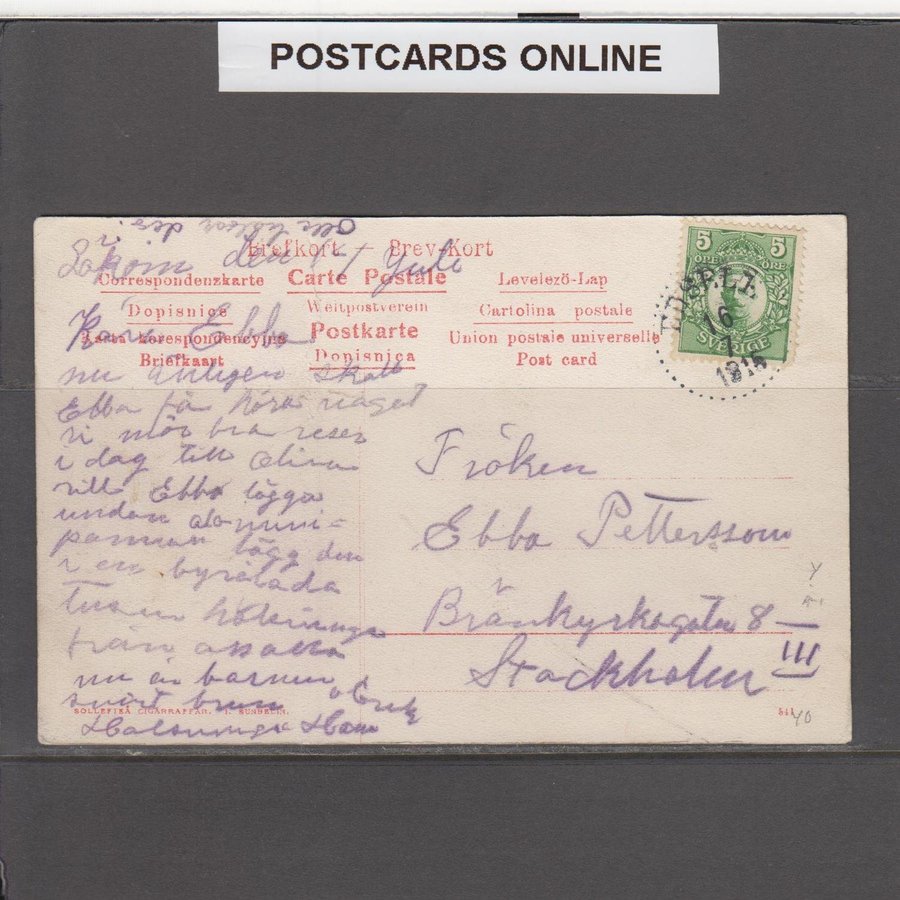 POSTCARDS ONLINE
Brefkort — Brev-Kort
den Juli
Correspondenzkarte Carte Postale Levelező-Lap
Dopisnice Weltpostverein Cartolina postale
Karta korespondencyjna Postkarte Union postale universelle
Briefkaart Dopisnica Post card
5 5
ÖRE ÖRE
SVERIGE
16
1
1916
Kära Ebba
nu äntligen skall
Ebba få höra något
vi mår bra reser
i dag till
vill Ebba lägga
undan alomini-
pannan lägg den
i en byrålåda
från
nu är barnen
svårt brun
Fröken
Ebba Pettersson
Brännkyrkagatan 8
III
Stockholm
SOLLEFTEÅ CIGARRAFFÄR.
40